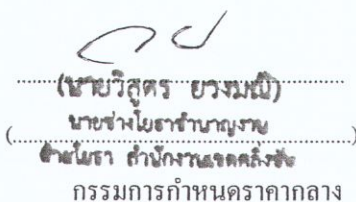 (นายวิสูตร ยวงมณี)
นายช่างโยธาชำนาญงาน
(
ฝ่ายโยธา สำนักงานเขตตลิ่งชัน
กรรมการกำหนดราคากลาง